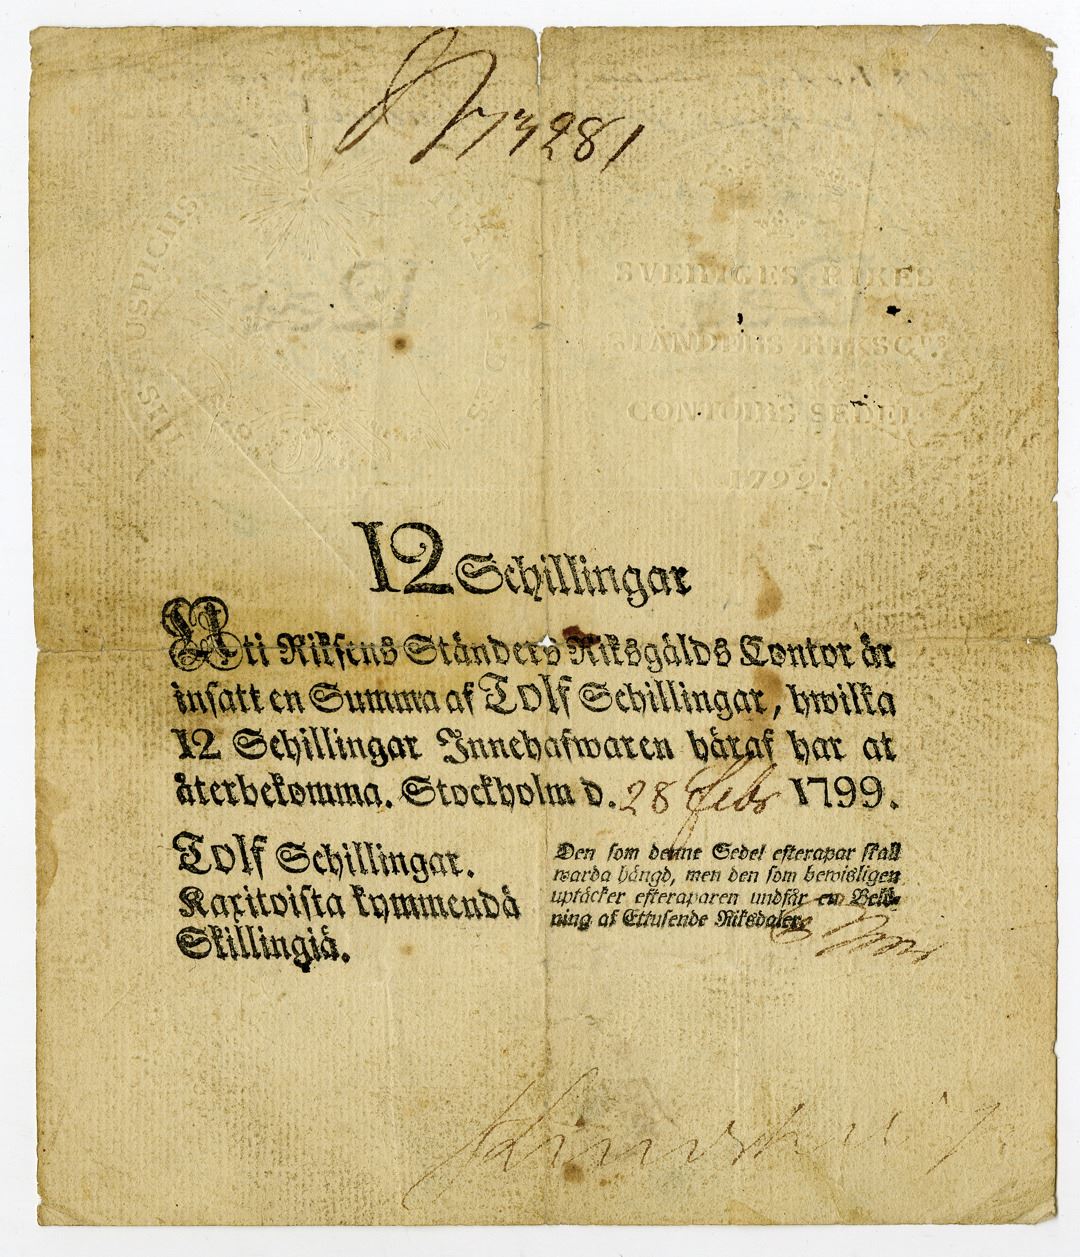 N 173281
HIS AUSPICIIS
SVERIGES RIKES
STÄNDERS RIKSG:S
CONTOIRS SEDEL
1799.
12 Schillingar
Uti Riksens Ständers Riksgälds Contor är
insatt en Summa af Tolf Schillingar, hwilka
12 Schillingar Innehafwaren häraf har at
återbekomma. Stockholm d. 28 Febr 1799.
Tolf Schillingar.
Kaxitoista kymmendä
Skillingiä.
Den som denne Sedel efterapar skall
warda hängd, men den som bewisligen
uptäcker efteraparen undfår en Belö-
ning af Ettusende Riksdaler.